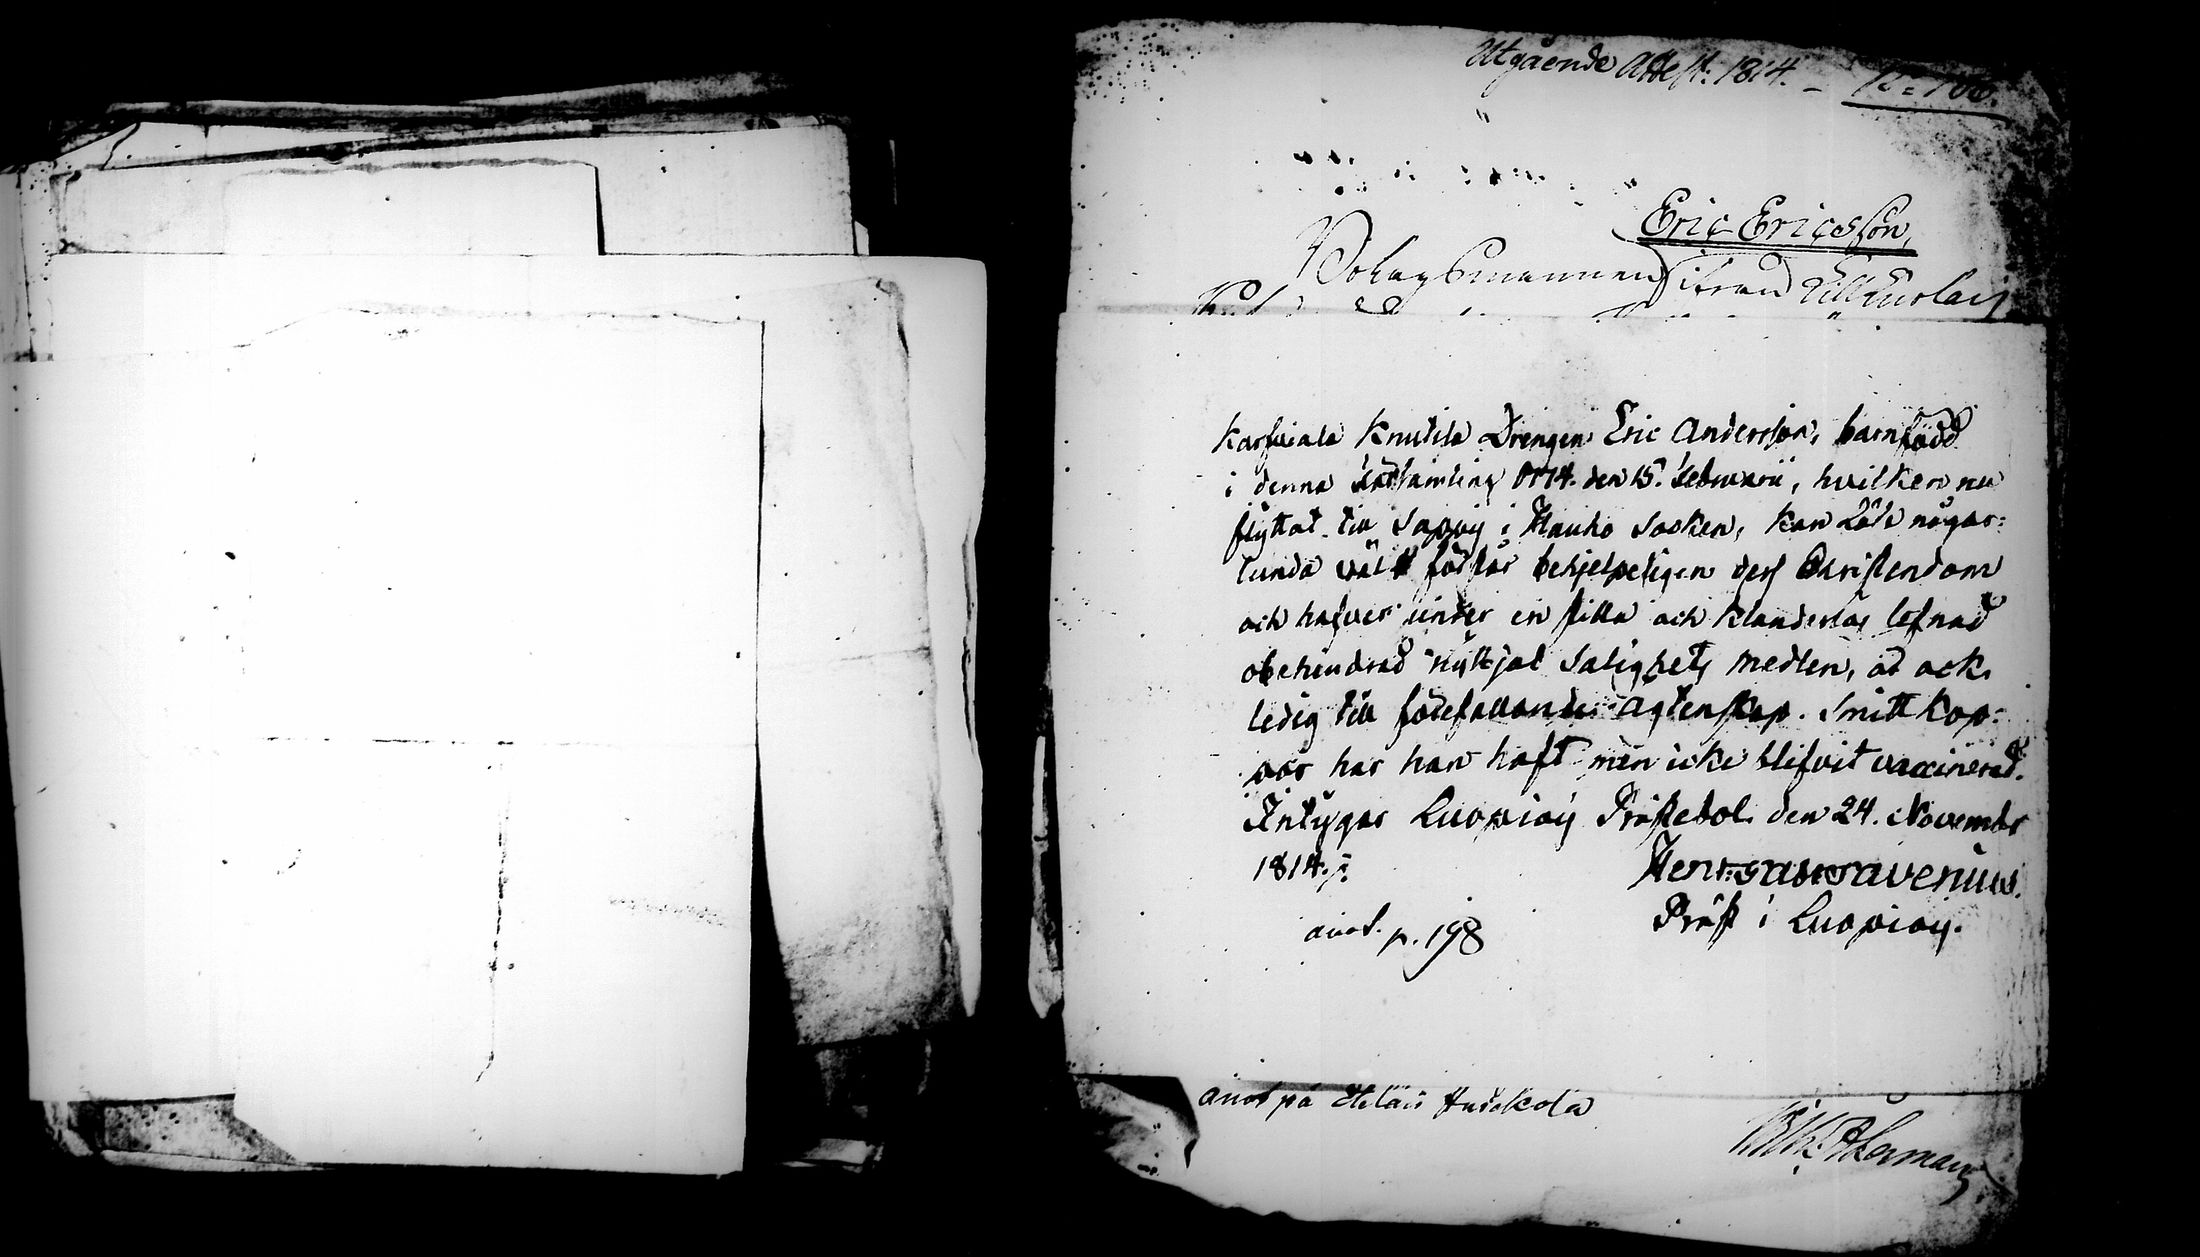 Utgående Attest: 1814. – No 100.
Eric Ericsson,
Bolagsmannen ifrån
Karfviala Knutila Drengen Eric Andersson, barnfödd
i denna Församling 1774. den 15. Februarii, hvilken nu
flyttat till Sappij i Hauho Socken, kan Läsa någor:
lunda väl förstår behjelpeligen dess Christendom
och hafver under en stilla och Klanderlös lefnad
obehindrad nyttjat Salighets medlen, är ock
ledig till förefallande Ägtenskap. Smitt Kop:
por har han haft men icke blifvit vaccinerad.
Intygar Luopiois Prästebol den 24. November
1814.
Präst i Luopiois.
anot. p. 198
anot på